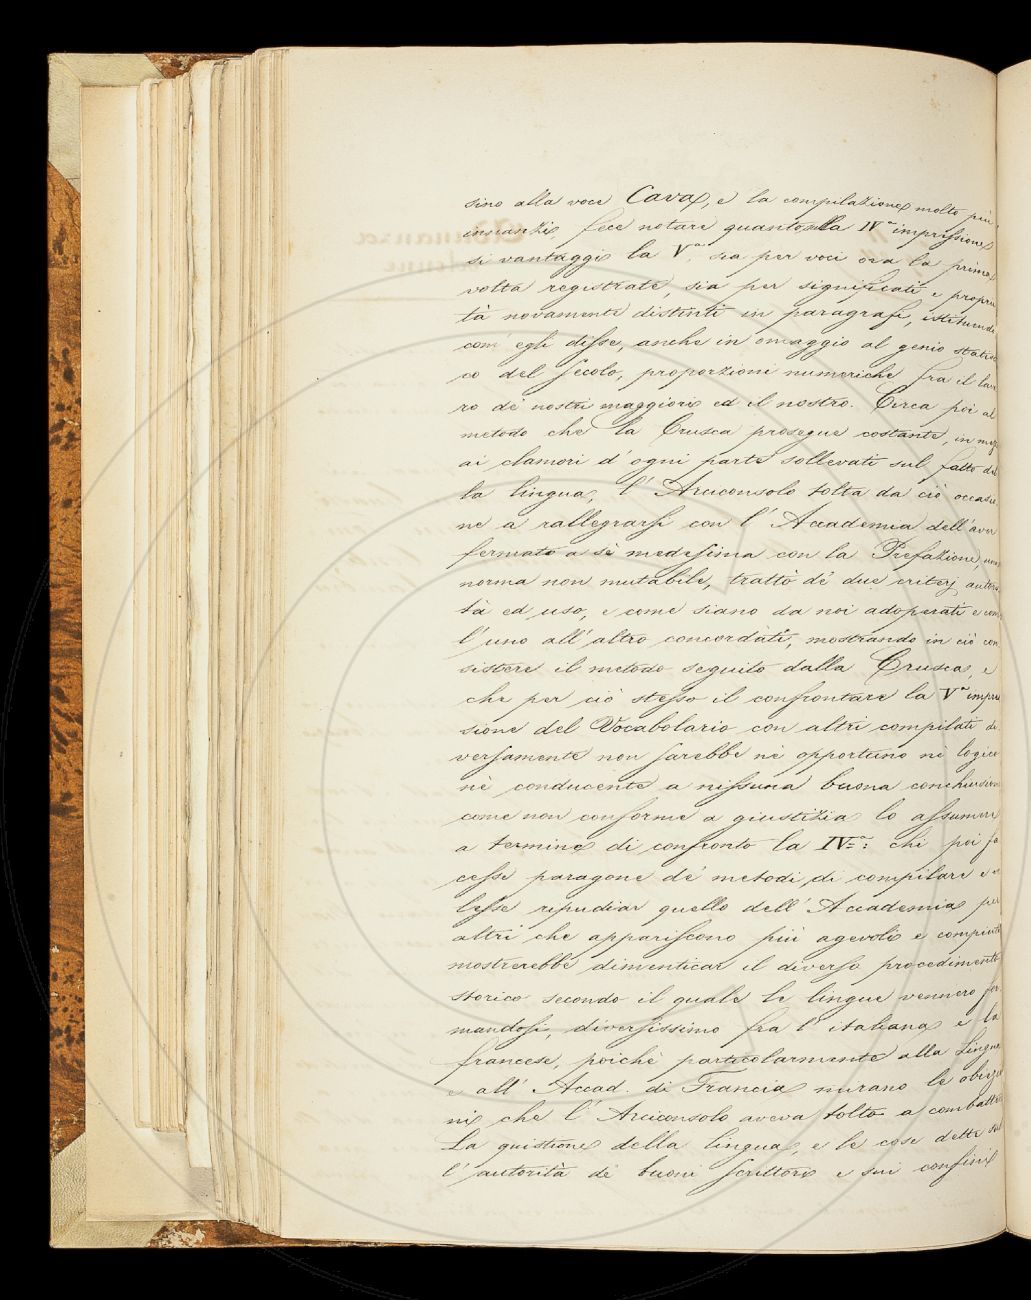 sino alla voce Cava, e la compilazione molto più
innanzi, fece notare quanto sulla IVª impressione
si vantaggi la Vª, sia per voci ora la prima
volta registrate, sia per significati e proprie
tà novamente distinti in paragrafi, istituendo
com' egli disse, anche in omaggio al genio statisti
co del secolo, proporzioni numeriche fra il lavo
ro de' nostri maggiori ed il nostro. Circa poi al
metodo che la Crusca prosegue costante, in mezzo
ai clamori d' ogni parte sollevati sul fatto del
la lingua, l' Arciconsolo tolta da ciò occasio
ne a rallegrarsi con l' Accademia dell' aver
fermato a sè medesima con la Prefazione, una
norma non mutabile, trattò de' due criterj autori
tà ed uso, e come siano da noi adoperati e con
l' uno all' altro concordàti, mostrando in ciò con
sistere il metodo seguito dalla Crusca, e
che per ciò stesso il confrontare la Vª impres
sione del Vocabolario con altri compilati di
versamente non sarebbe nè opportuno nè logico
nè conducente a nissuna buona conchiusione
come non conforme a giustizia lo assumere
a termine di confronto la IVª: chi poi fa
cesse paragone de' metodi di compilare e vo
lesse ripudiar quello dell' Accademia per
altri che appariscono più agevoli e compiuti
mostrerebbe dimenticar il diverso procedimento
storico secondo il quale le lingue vennero for
mandosi, diversissimo fra l' italiana e la
francese, poichè particolarmente alla Lingua
e all' Accad. di Francia mirano le obiezio
ni che l' Arciconsolo aveva tolto a combattere
La quistione della lingua, e le cose dette sul
l' autorità de' buoni scrittori e sui confini